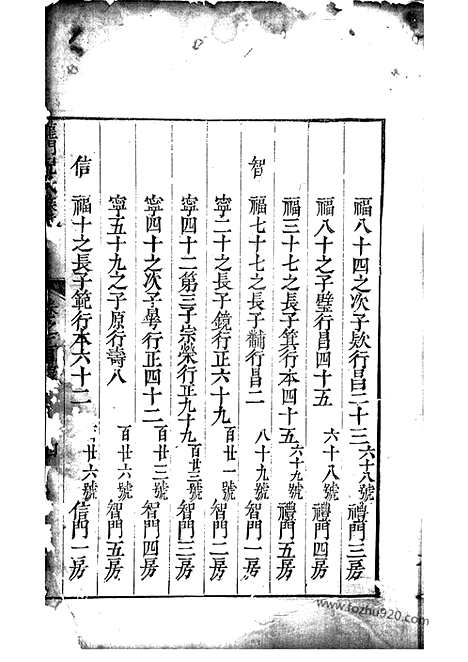 福八十四之次子欵行昌二十三 六十八號 禮門三房
福八十之子璧行昌四十五 六十八號 禮門四房
福三十七之長子箕行本四十五 六十九號 禮門五房
智 福七十七之長子黼行昌二 八十九號 智門一房
寧二十之長子鏡行正六十九 百廿一號 智門二房
寧四十二第三子宗榮行正九十九 百廿三號 智門三房
寧四十之次子舉行正四十二 百廿三號 智門四房
寧五十九之子原行壽八 百廿六號 智門五房
信 福十之長子範行本六十二 廿六號 信門一房
www.tozhu920.com